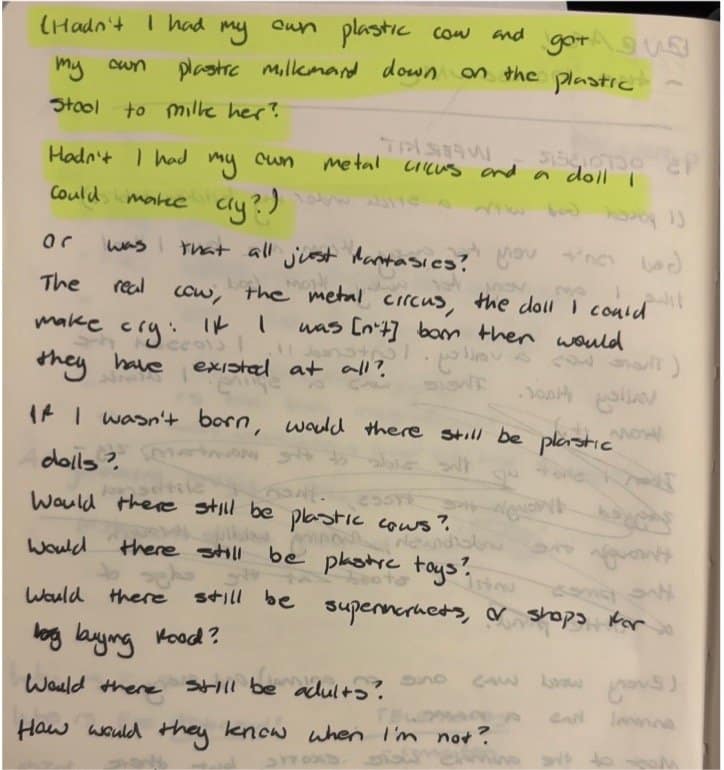 (Hadn't I had my own plastic cow and got
my own plastic milkmaid down on the plastic
stool to milk her?
Hadn't I had my own metal circus and a doll I
could make cry?)
or was that all just fantasies?
The real cow, the metal circus, the doll I could
make cry: If I was [n't] born then would
they have existed at all?
If I wasn't born, would there still be plastic
dolls?
Would there still be plastic cows?
Would there still be plastic toys?
Would there still be supermarkets, or shops for
buying food?
Would there still be adults?
How would they know when I'm not?